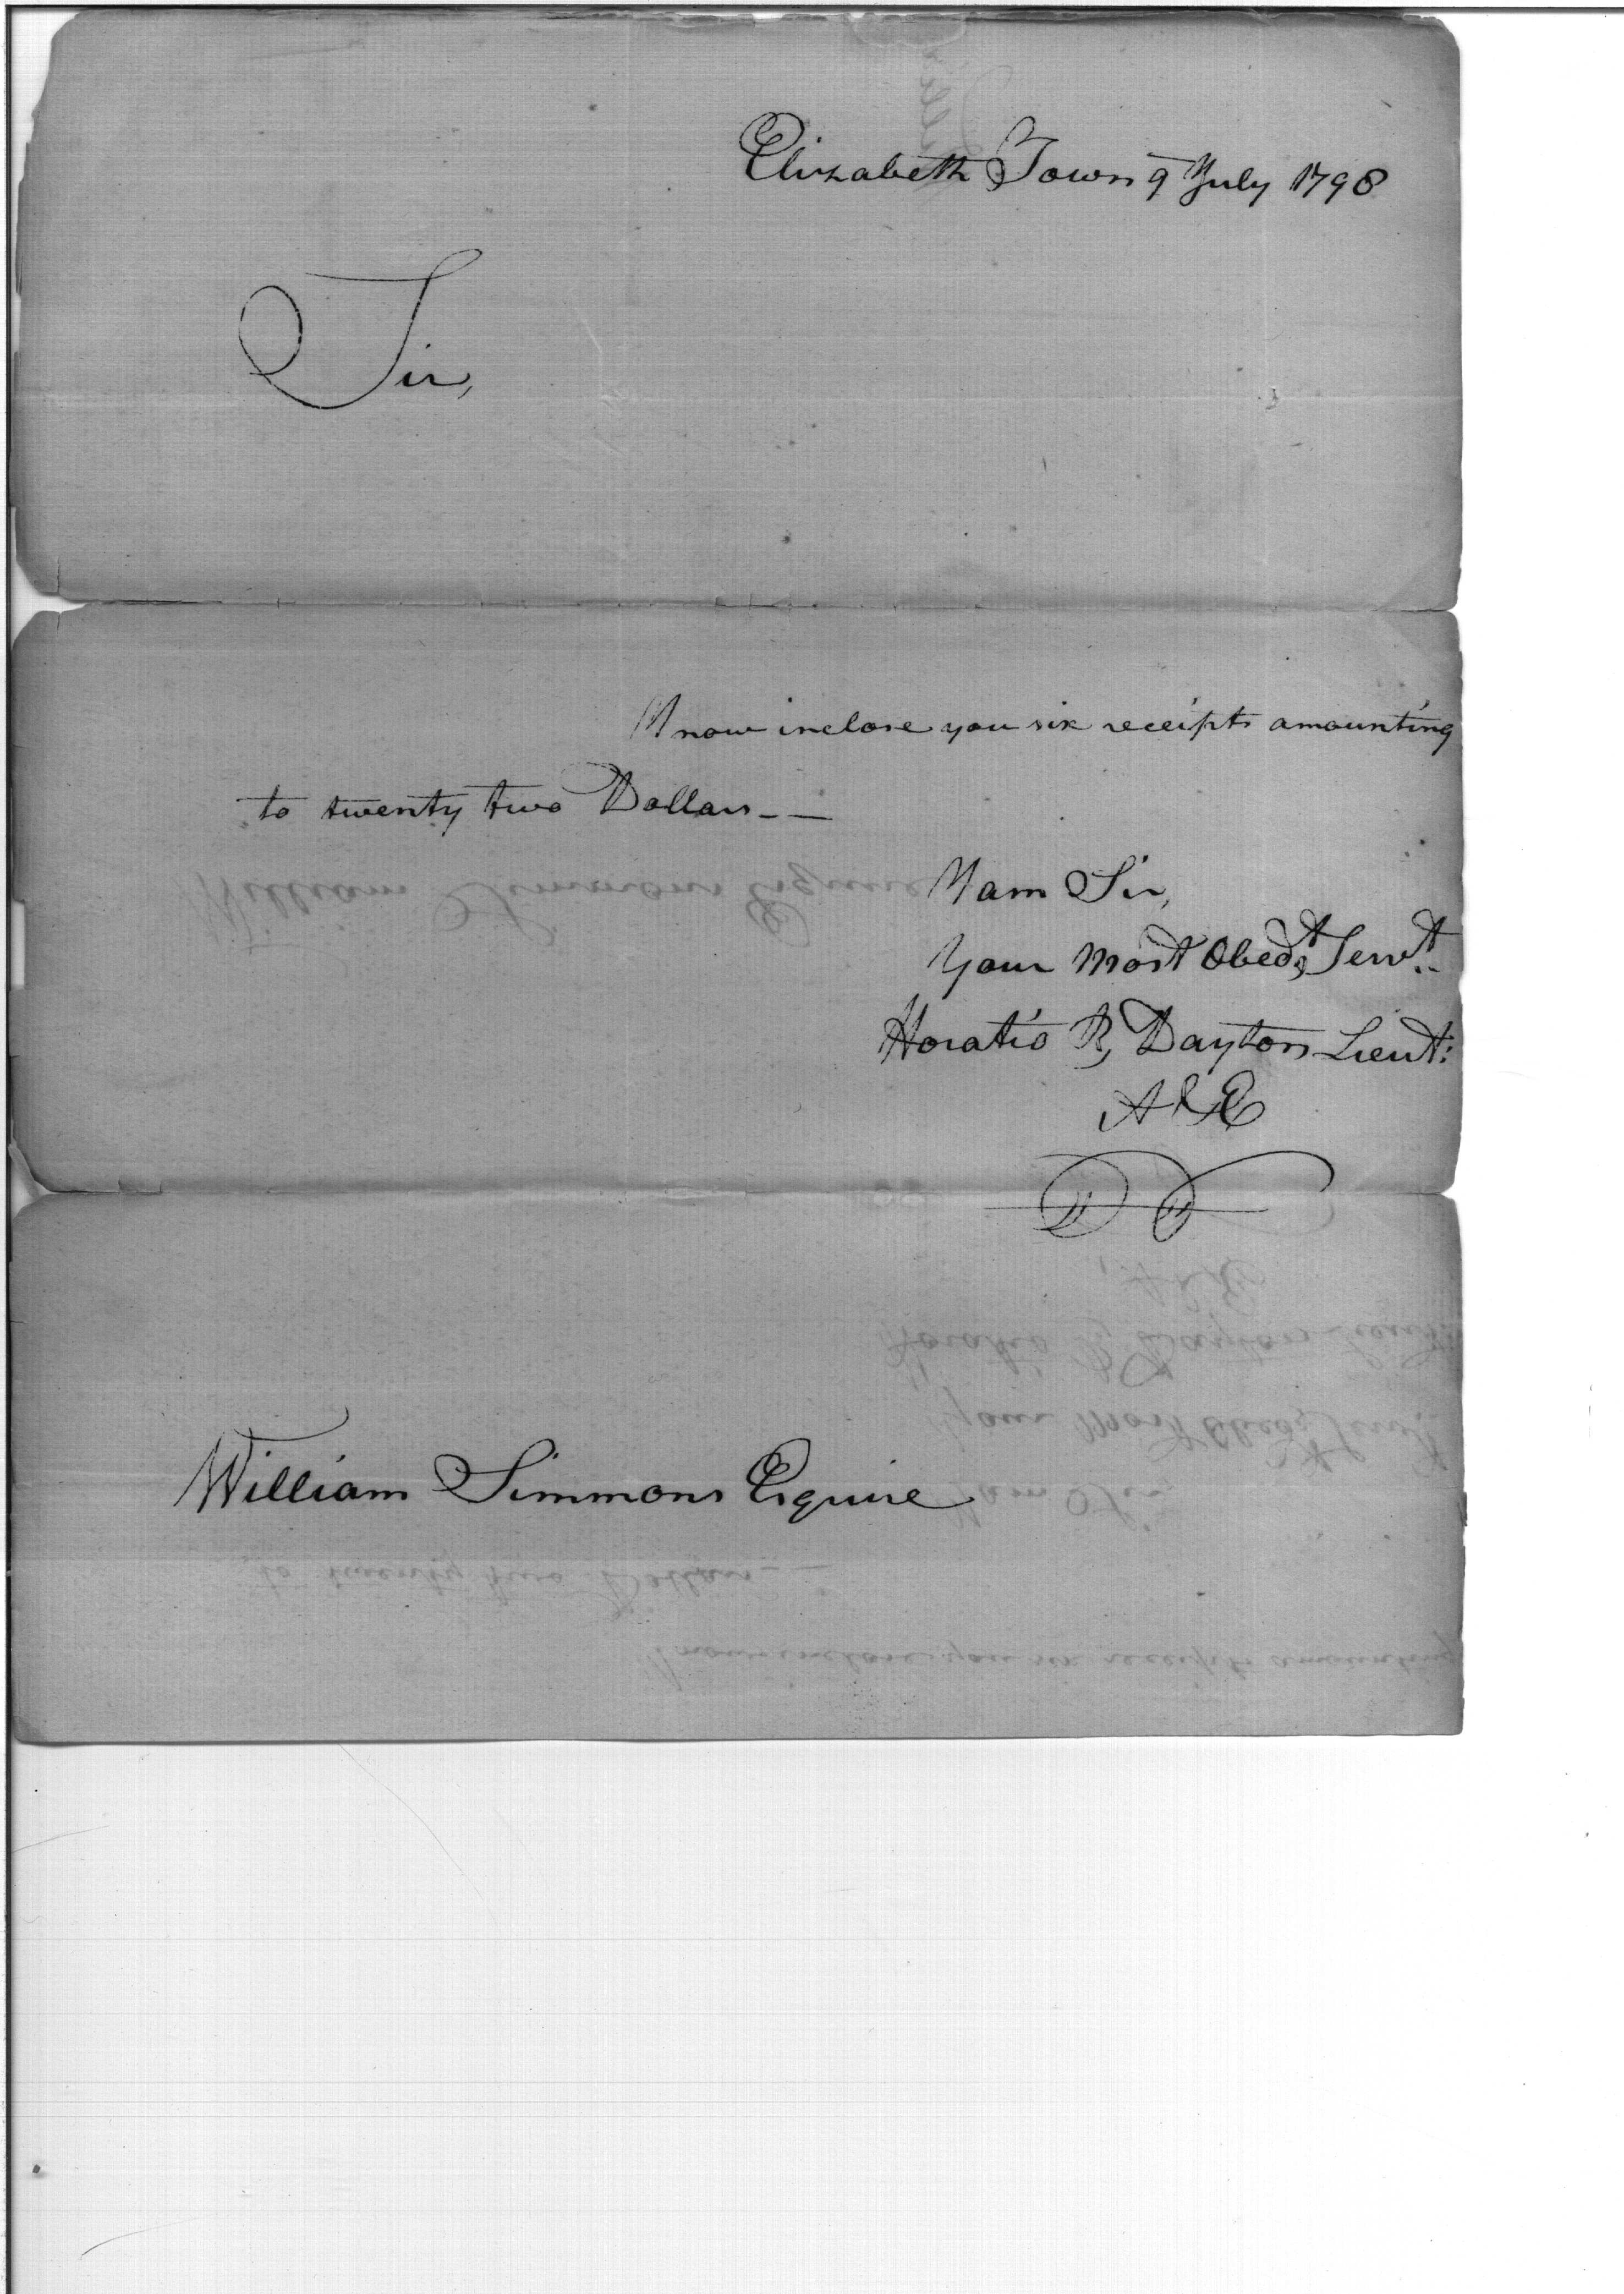 Elizabeth Town 9 July 1798
Sir,
I now inclose you six receipts amounting
to twenty two Dollars_ _
I am Sir,
Your most Obedt Servt..
Horatio R, Dayton Lieut:
A & E
William Simmons Esquire